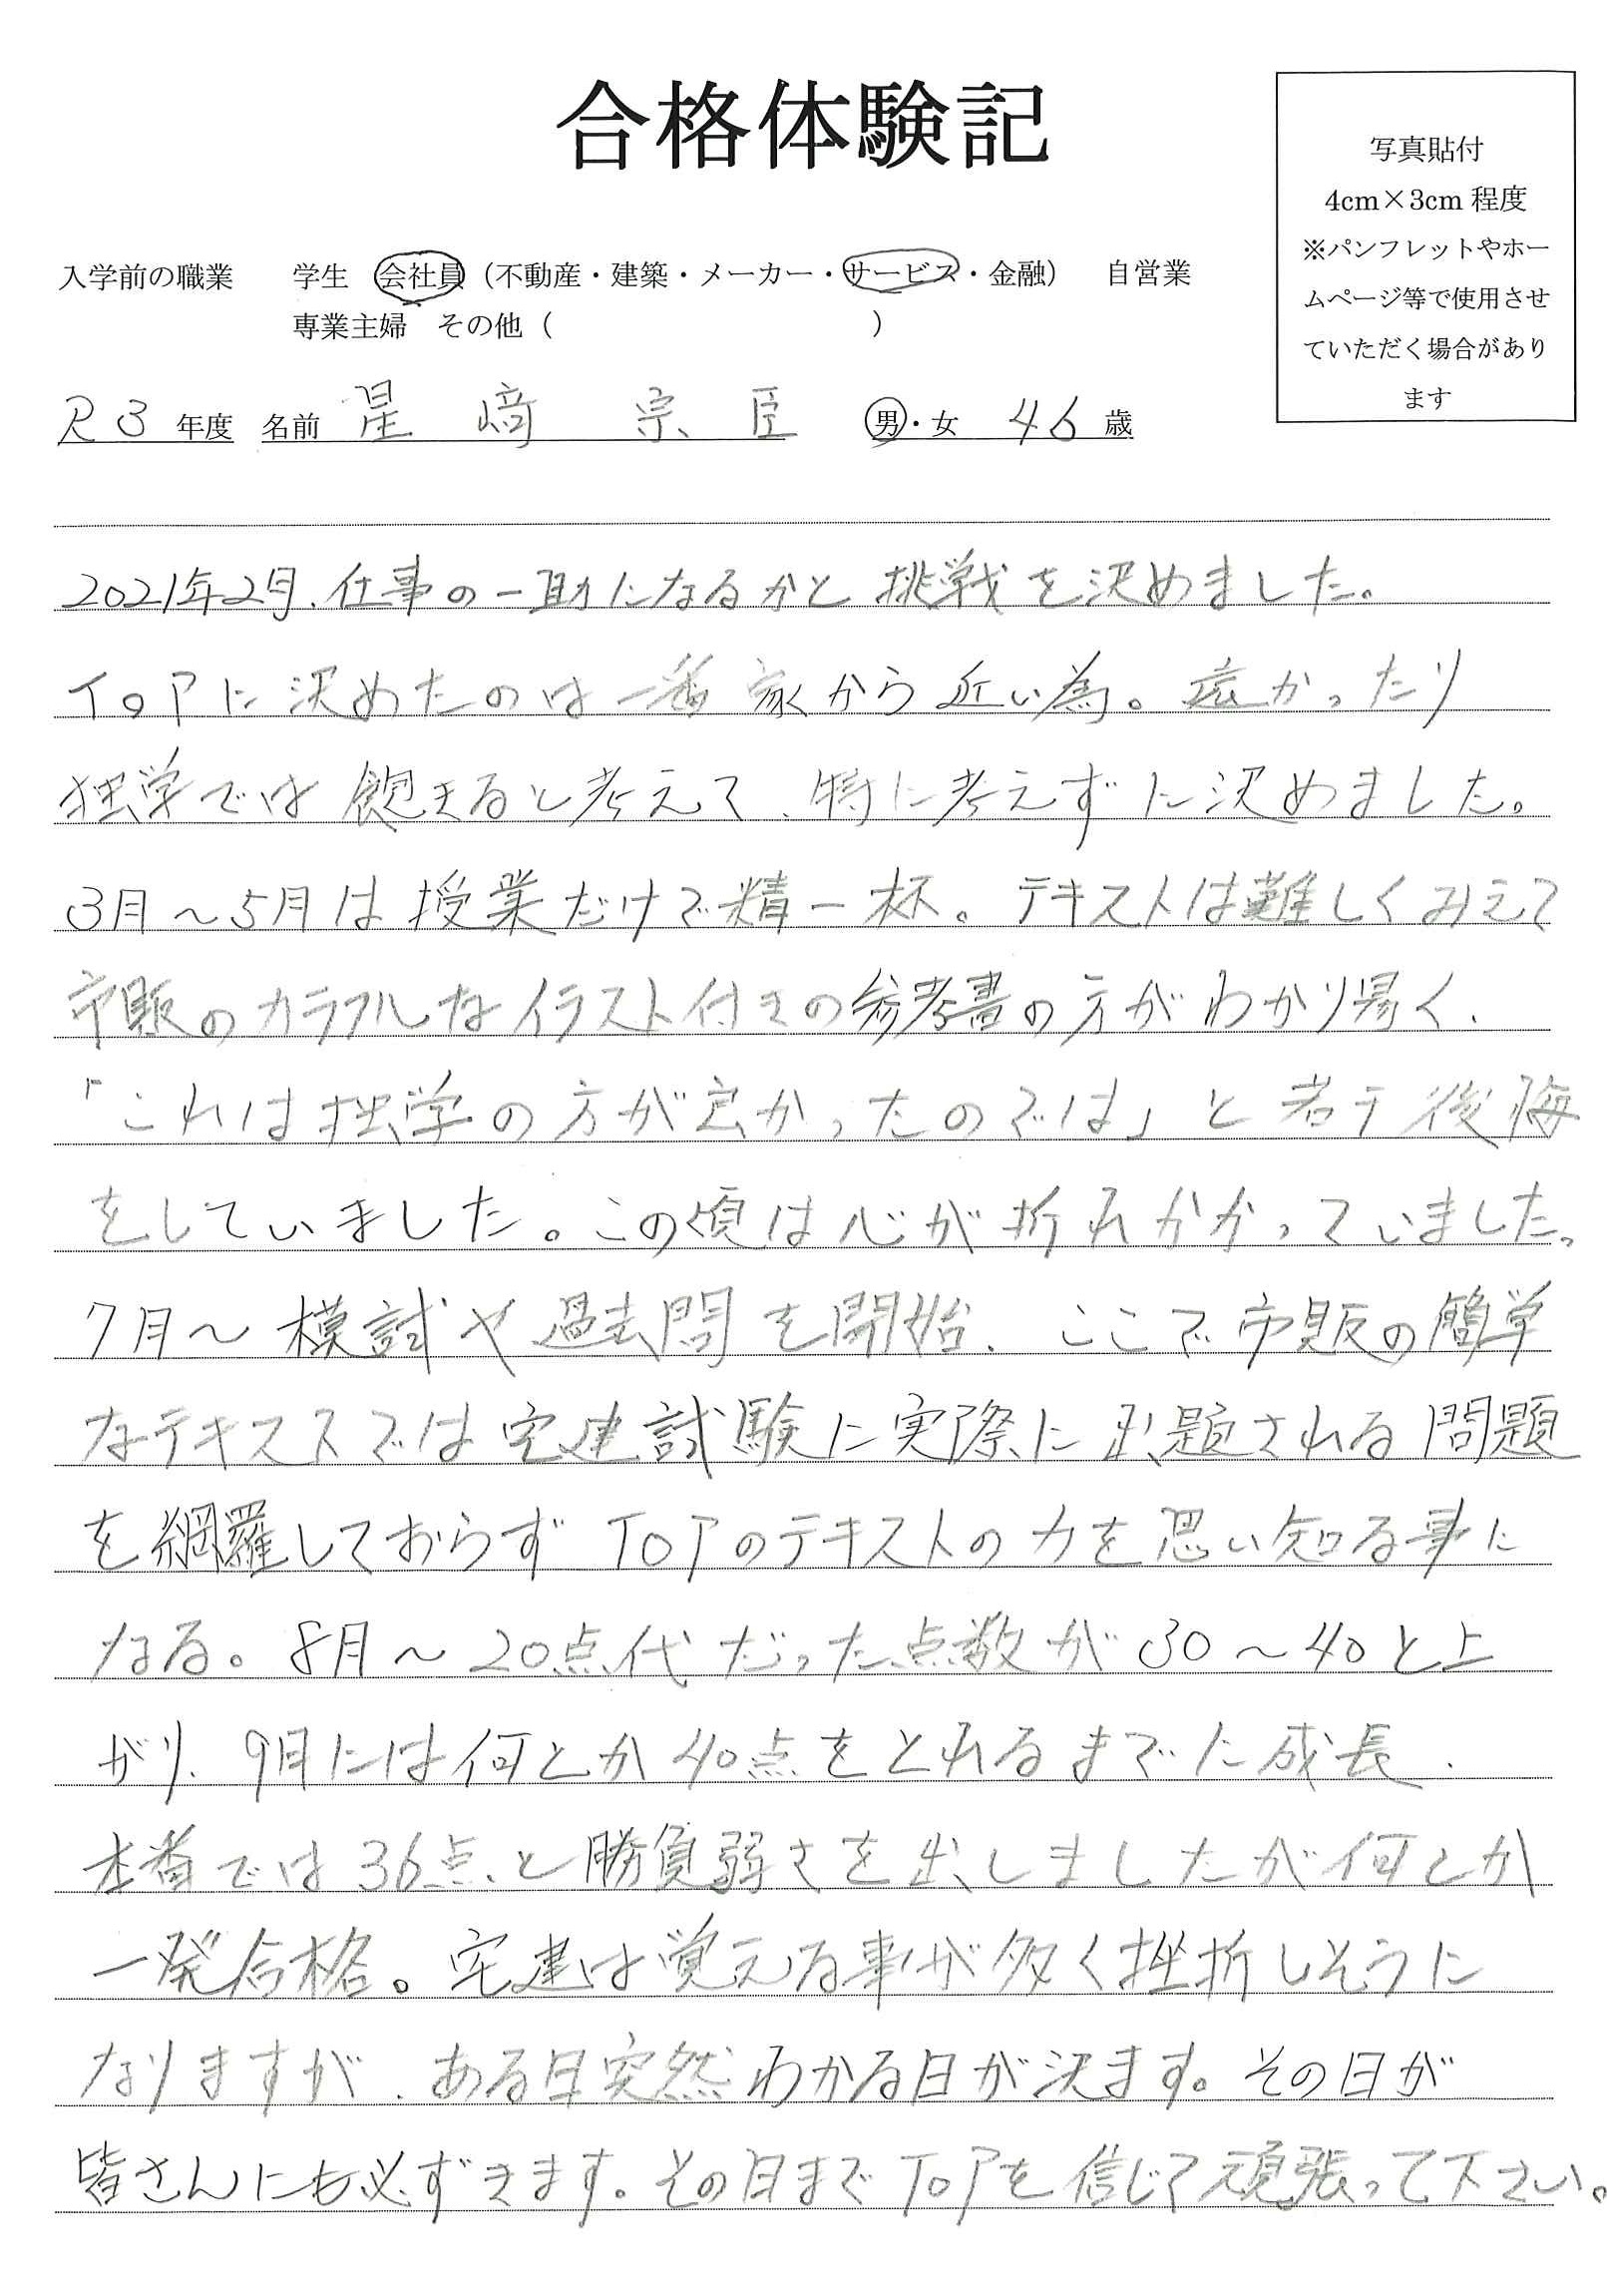 合格体験記
写真貼付
4cm×3cm 程度
※パンフレットやホー
ムページ等で使用させ
ていただく場合があり
ます
入学前の職業 学生 会社員（不動産・建築・メーカー・サービス・金融） 自営業
専業主婦 その他（ ）
R3 年度 名前 星﨑 宗臣 男・女 46 歳
2021年2月、仕事の一助になるかと挑戦を決めました。
ToPに決めたのは一番家から近い為。遠かったり
独学では飽きると考えて、特に考えずに決めました。
3月～5月は授業だけで精一杯。テキストは難しくみえて
市販のカラフルなイラスト付きの参考書の方がわかり易く、
「これは独学の方が良かったのでは」と若干後悔
をしていました。この頃は心が折れかかっていました。
7月～模試や過去問を開始、ここで市販の簡単
なテキストでは宅建試験に実際に出題される問題
を網羅しておらずToPのテキストの力を思い知る事に
なる。8月～20点代だった点数が30～40と上
がり、9月には何とか40点をとれるまでに成長、
本番では36点と勝負弱さを出しましたが何とか
一発合格。宅建は覚える事が多く挫折しそうに
なりますが、ある日突然わかる日が決ます。その日が
皆さんにも必ずきます。その日までToPを信じて頑張って下さい。